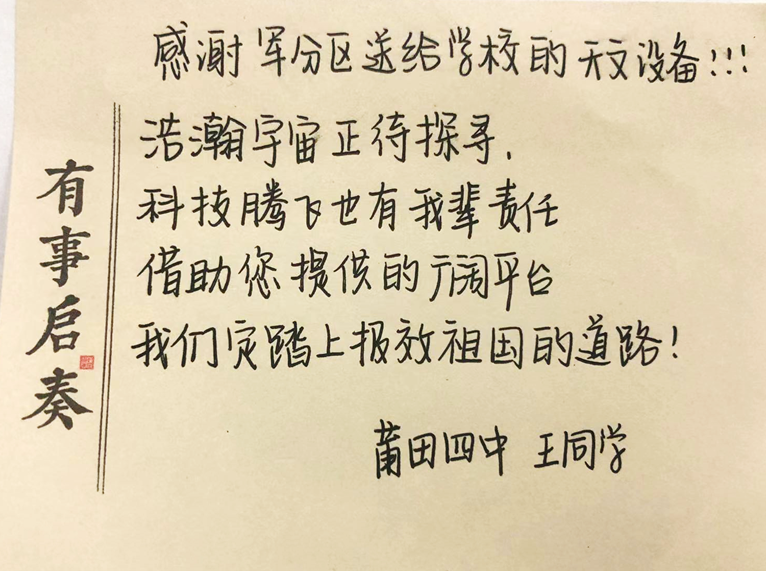 感谢军分区送给学校的天文设备!!!
浩瀚宇宙正待探寻,
科技腾飞也有我辈责任
借助您提供的广阔平台
我们定踏上报效祖国的道路!
莆田四中 王同学
有事启奏